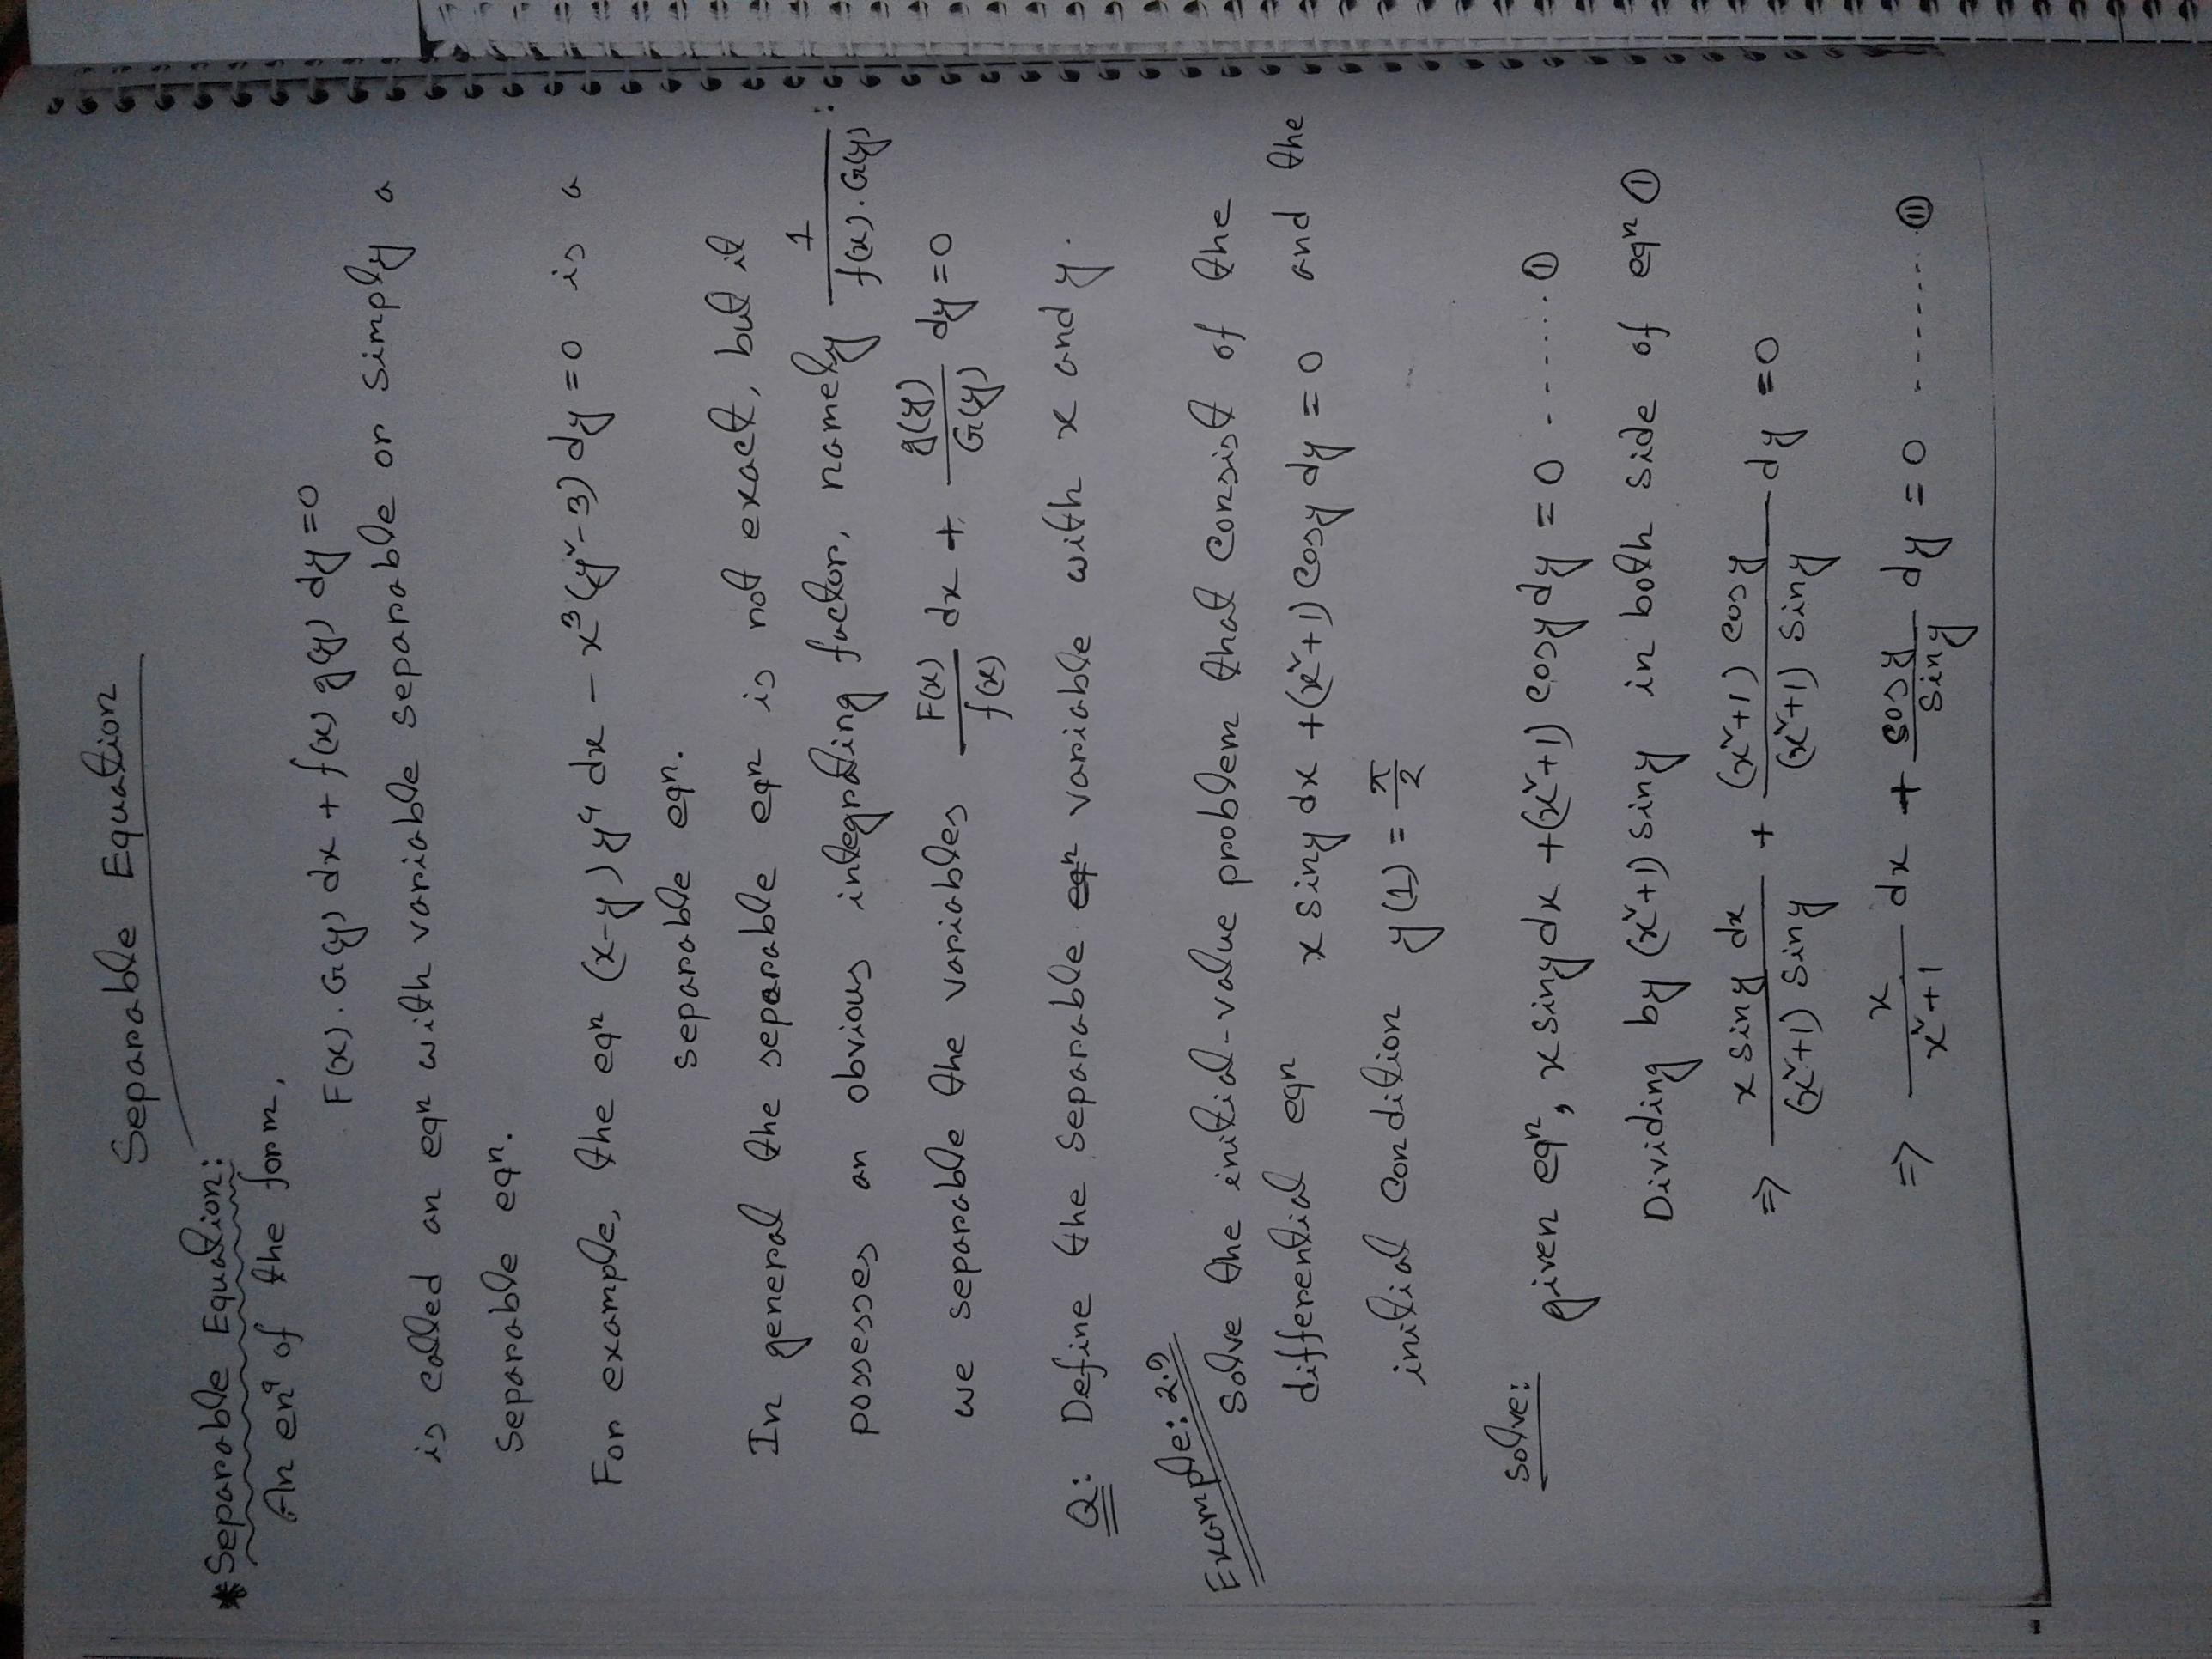 Separable Equation
*Separable Equation:
An enq of the form,
F(x). G(y) dx + f(x) g(y) dy = 0
is called an eqn with variable separable or simply a
separable eqn.
For example, the eqn (x-y) y⁴ dx - x³(y²-3) dy = 0 is a
separable eqn.
In general the separable eqn is not exact, but it
possesses an obvious integrating factor, namely 1/(f(x). G(y)):
we separable the variables F(x)/f(x) dx + g(y)/G(y) dy = 0
Q: Define the separable eqn variable with x and y.
Example: 2.9
Solve the initial-value problem that consist of the
differential eqn x siny dx + (x²+1) cosy dy = 0 and the
initial condition y(1) = π/2
Solve:
given eqn, x siny dx + (x²+1) cosy dy = 0 ------- ①
Dividing by (x²+1) siny in both side of eqn ①
⇒ x siny dx/((x²+1) siny) + (x²+1) cosy/((x²+1) siny) dy = 0
⇒ x/(x²+1) dx + cosy/siny dy = 0 -------- ⑪